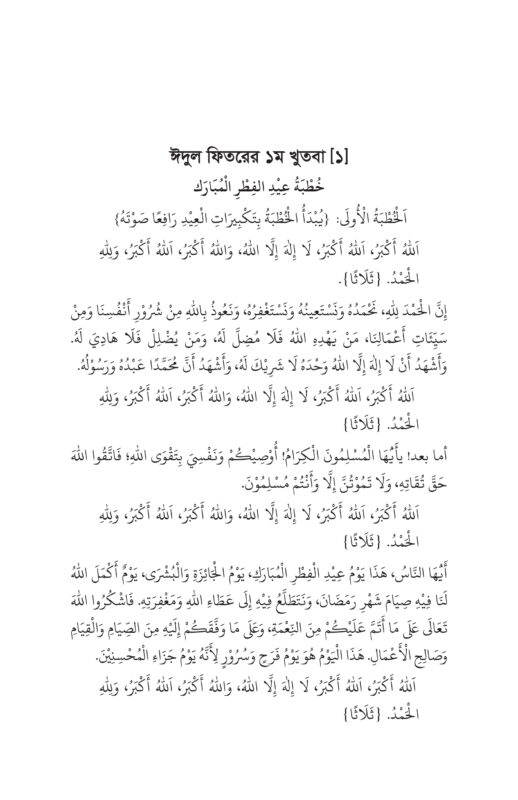 ঈদুল ফিতরের ১ম খুতবা [১]
خُطْبَةُ عِيْدِ الفِطْرِ الْمُبَارَك
اَلْخُطْبَةُ الْأُولَى: {يُبْدَأُ الْخُطْبَةُ بِتَكْبِيرَاتِ الْعِيْدِ رَافِعًا صَوْتَهُ}
اَللهُ أَكْبَرُ، اَللهُ أَكْبَرُ، لَا إِلٰهَ إِلَّا اللهُ، وَاللهُ أَكْبَرُ، اَللهُ أَكْبَرُ، وَلِلّٰهِ
الْحَمْدُ. {ثَلَاثًا}.
إِنَّ الْحَمْدَ لِلّٰهِ، نَحْمَدُهُ وَنَسْتَعِينُهُ وَنَسْتَغْفِرُهُ، وَنَعُوذُ بِاللهِ مِنْ شُرُوْرِ أَنْفُسِنَا وَمِنْ
سَيِّئَاتِ أَعْمَالِنَا، مَنْ يَهْدِهِ اللهُ فَلَا مُضِلَّ لَهُ، وَمَنْ يُضْلِلْ فَلَا هَادِيَ لَهُ.
وَأَشْهَدُ أَنْ لَا إِلٰهَ إِلَّا اللهُ وَحْدَهُ لَا شَرِيْكَ لَهُ، وَأَشْهَدُ أَنَّ مُحَمَّدًا عَبْدُهُ وَرَسُوْلُهُ.
اَللهُ أَكْبَرُ، اَللهُ أَكْبَرُ، لَا إِلٰهَ إِلَّا اللهُ، وَاللهُ أَكْبَرُ، اَللهُ أَكْبَرُ، وَلِلّٰهِ
الْحَمْدُ. {ثَلَاثًا}
أما بعد! يأَيُّهَا الْمُسْلِمُونَ الْكِرَامُ! أُوْصِيْكُمْ وَنَفْسِيَ بِتَقْوَى اللهِ؛ فَاتَّقُوا اللهَ
حَقَّ تُقَاتِهِ، وَلَا تَمُوْتُنَّ إِلَّا وَأَنْتُمْ مُسْلِمُوْنَ.
اَللهُ أَكْبَرُ، اَللهُ أَكْبَرُ، لَا إِلٰهَ إِلَّا اللهُ، وَاللهُ أَكْبَرُ، اَللهُ أَكْبَرُ، وَلِلّٰهِ
الْحَمْدُ. {ثَلَاثًا}
أَيُّهَا النَّاسُ، هَذَا يَوْمُ عِيْدِ الْفِطْرِ الْمُبَارَكِ، يَوْمُ الْجَائِزَةِ وَالْبُشْرَى، يَوْمٌ أَكْمَلَ اللهُ
لَنَا فِيْهِ صِيَامَ شَهْرِ رَمَضَانَ، وَنَتَطَلَّعُ فِيْهِ إِلَى عَطَاءِ اللهِ وَمَغْفِرَتِهِ. فَاشْكُرُوا اللهَ
تَعَالَى عَلَى مَا أَتَمَّ عَلَيْكُمْ مِنَ النِّعْمَةِ، وَعَلَى مَا وَفَّقَكُمْ إِلَيْهِ مِنَ الصِّيَامِ وَالْقِيَامِ
وَصَالِحِ الْأَعْمَالِ. هَذَا الْيَوْمُ هُوَ يَوْمُ فَرَحٍ وَسُرُوْرٍ لِأَنَّهُ يَوْمُ جَزَاءِ الْمُحْسِنِيْنَ.
اَللهُ أَكْبَرُ، اَللهُ أَكْبَرُ، لَا إِلٰهَ إِلَّا اللهُ، وَاللهُ أَكْبَرُ، اَللهُ أَكْبَرُ، وَلِلّٰهِ
الْحَمْدُ. {ثَلَاثًا}